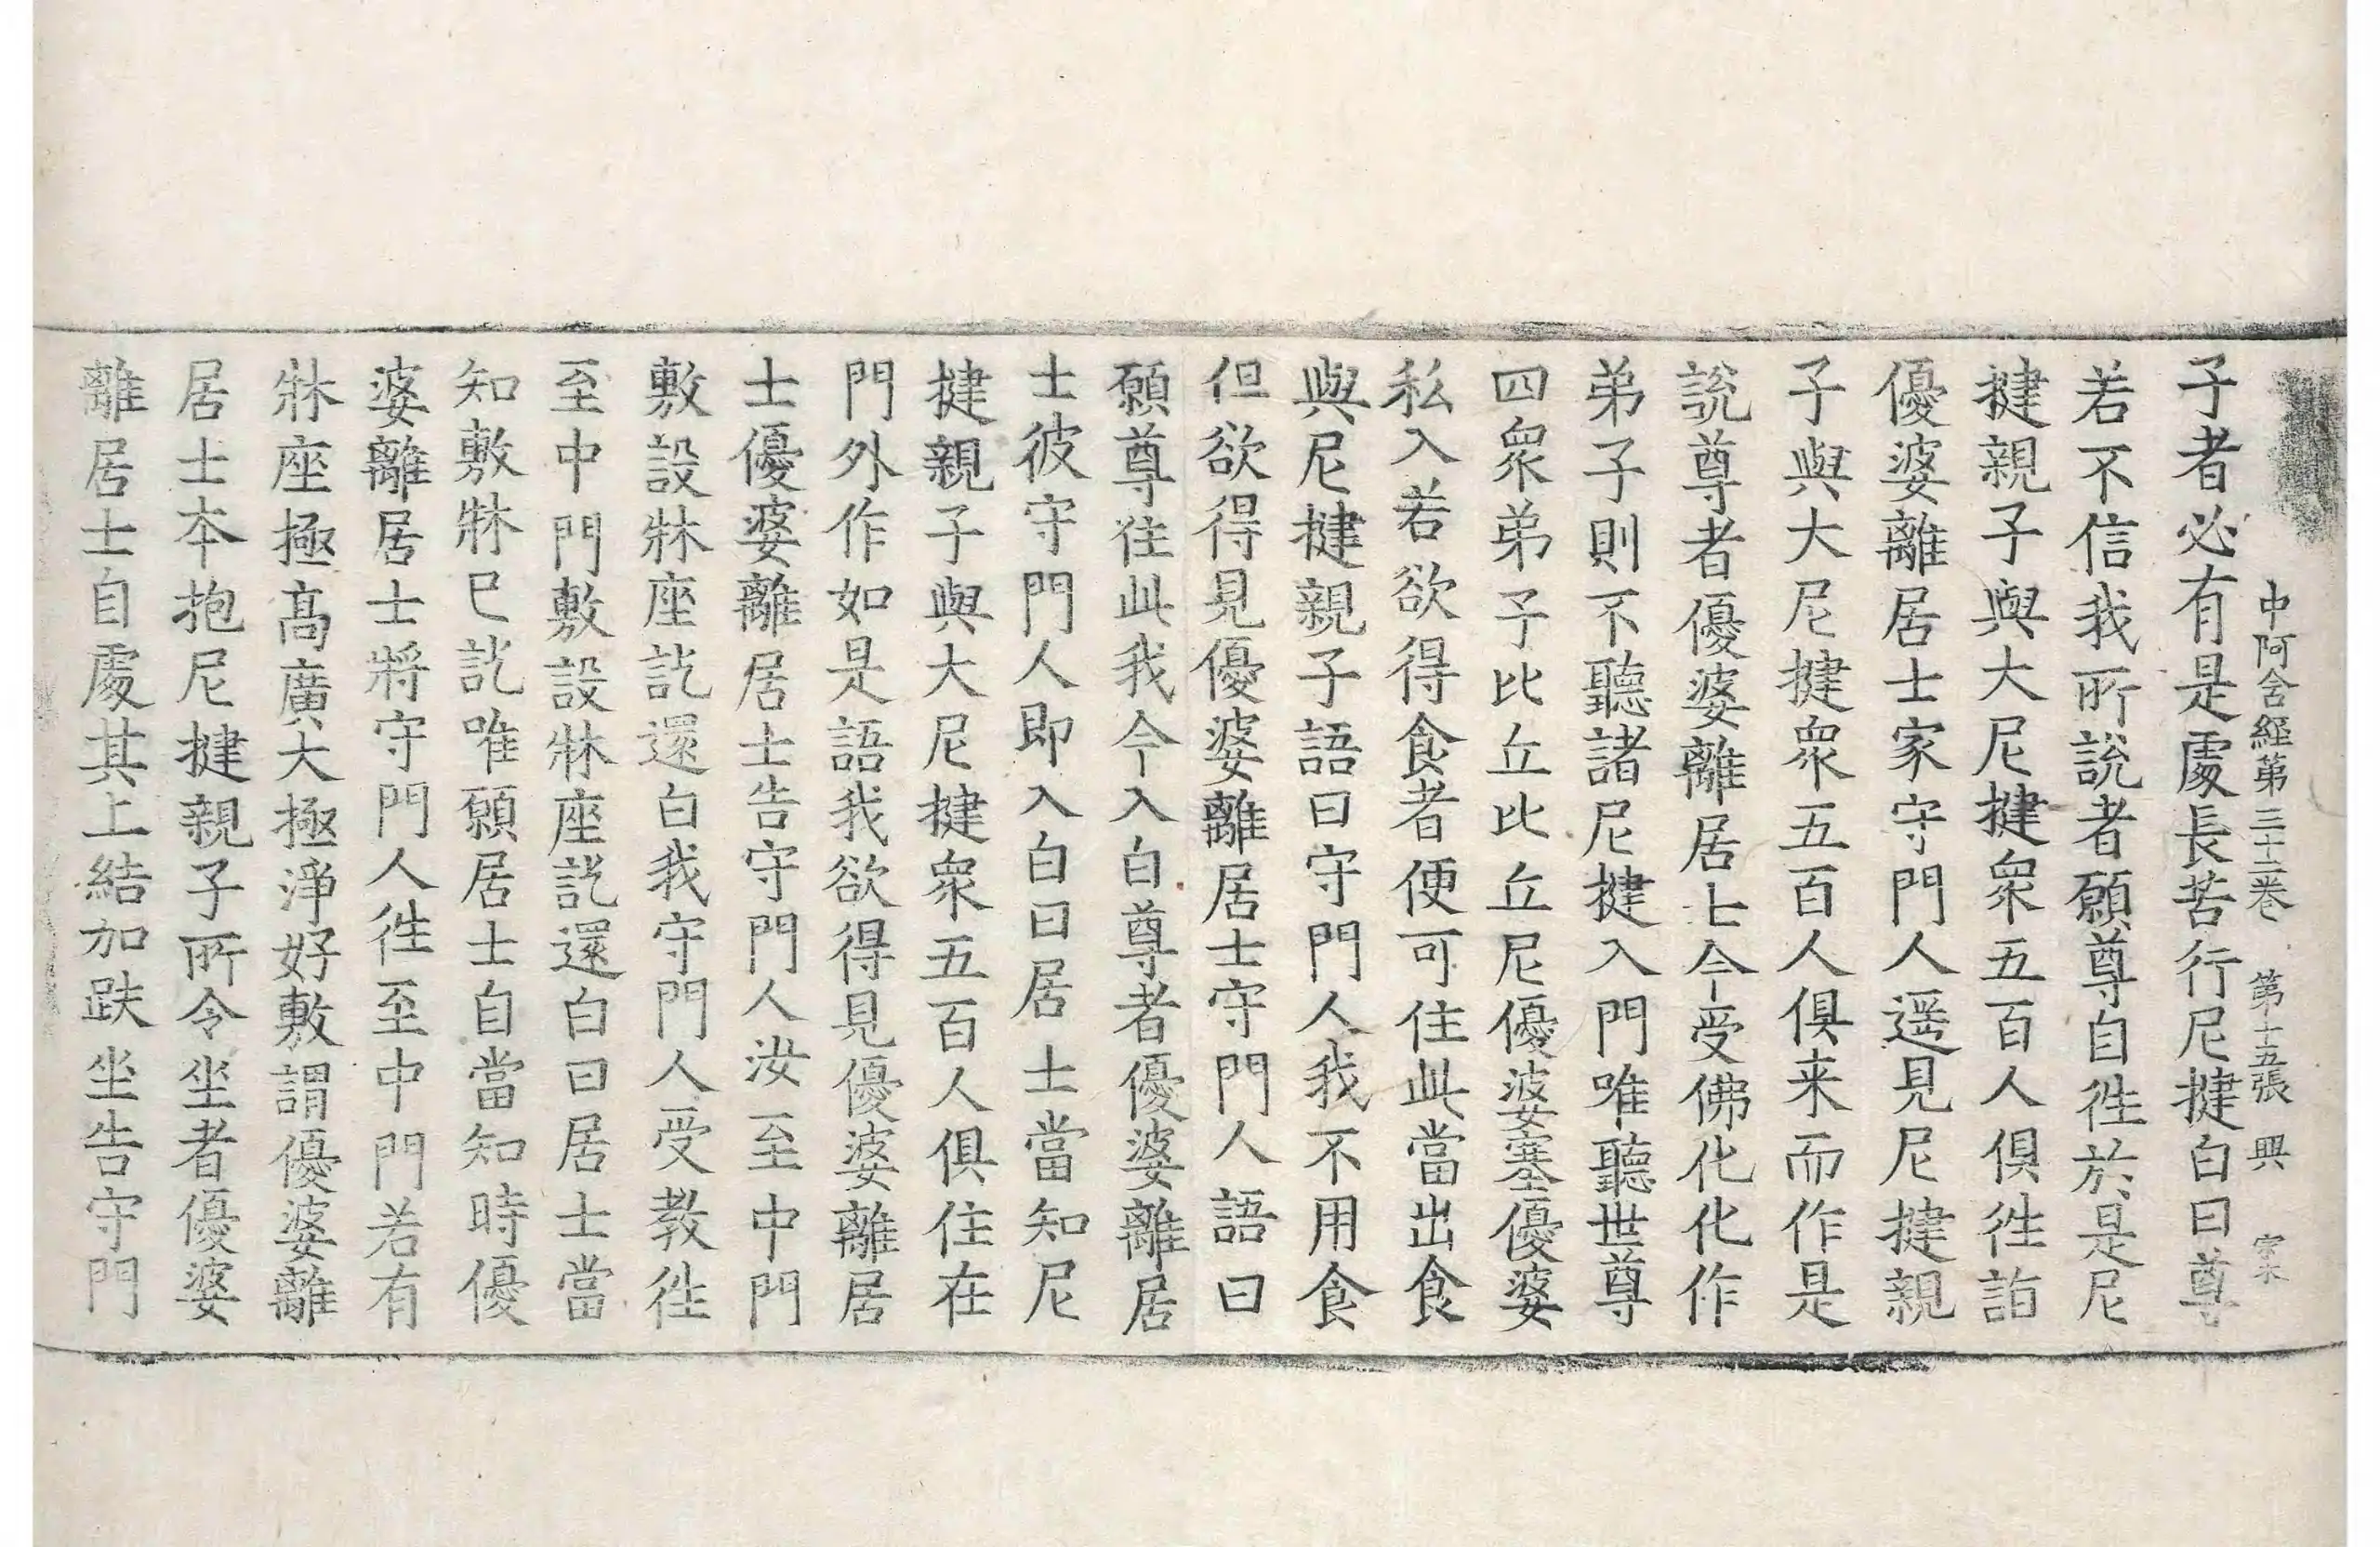 中阿含經第三十二卷 第十五張 興
子者必有是處長苦行尼揵白曰尊
若不信我所說者願尊自徃於是尼
揵親子與大尼揵衆五百人俱徃詣
優婆離居士家守門人遥見尼揵親
子與大尼揵衆五百人俱来而作是
說尊者優婆離居士今受佛化化作
弟子則不聽諸尼揵入門唯聽世尊
四衆弟子比丘比丘尼優婆塞優婆
私入若欲得食者便可住此當出食
與尼揵親子語曰守門人我不用食
但欲得見優婆離居士守門人語曰
願尊住此我今入白尊者優婆離居
士彼守門人即入白曰居士當知尼
揵親子與大尼揵衆五百人俱住在
門外作如是語我欲得見優婆離居
士優婆離居士告守門人汝至中門
敷設牀座訖還白我守門人受教徃
至中門敷設牀座訖還白曰居士當
知敷牀已訖唯願居士自當知時優
婆離居士將守門人徃至中門若有
牀座極髙廣大極淨好敷謂優婆離
居士本抱尼揵親子所令坐者優婆
離居士自處其上結加趺坐告守門